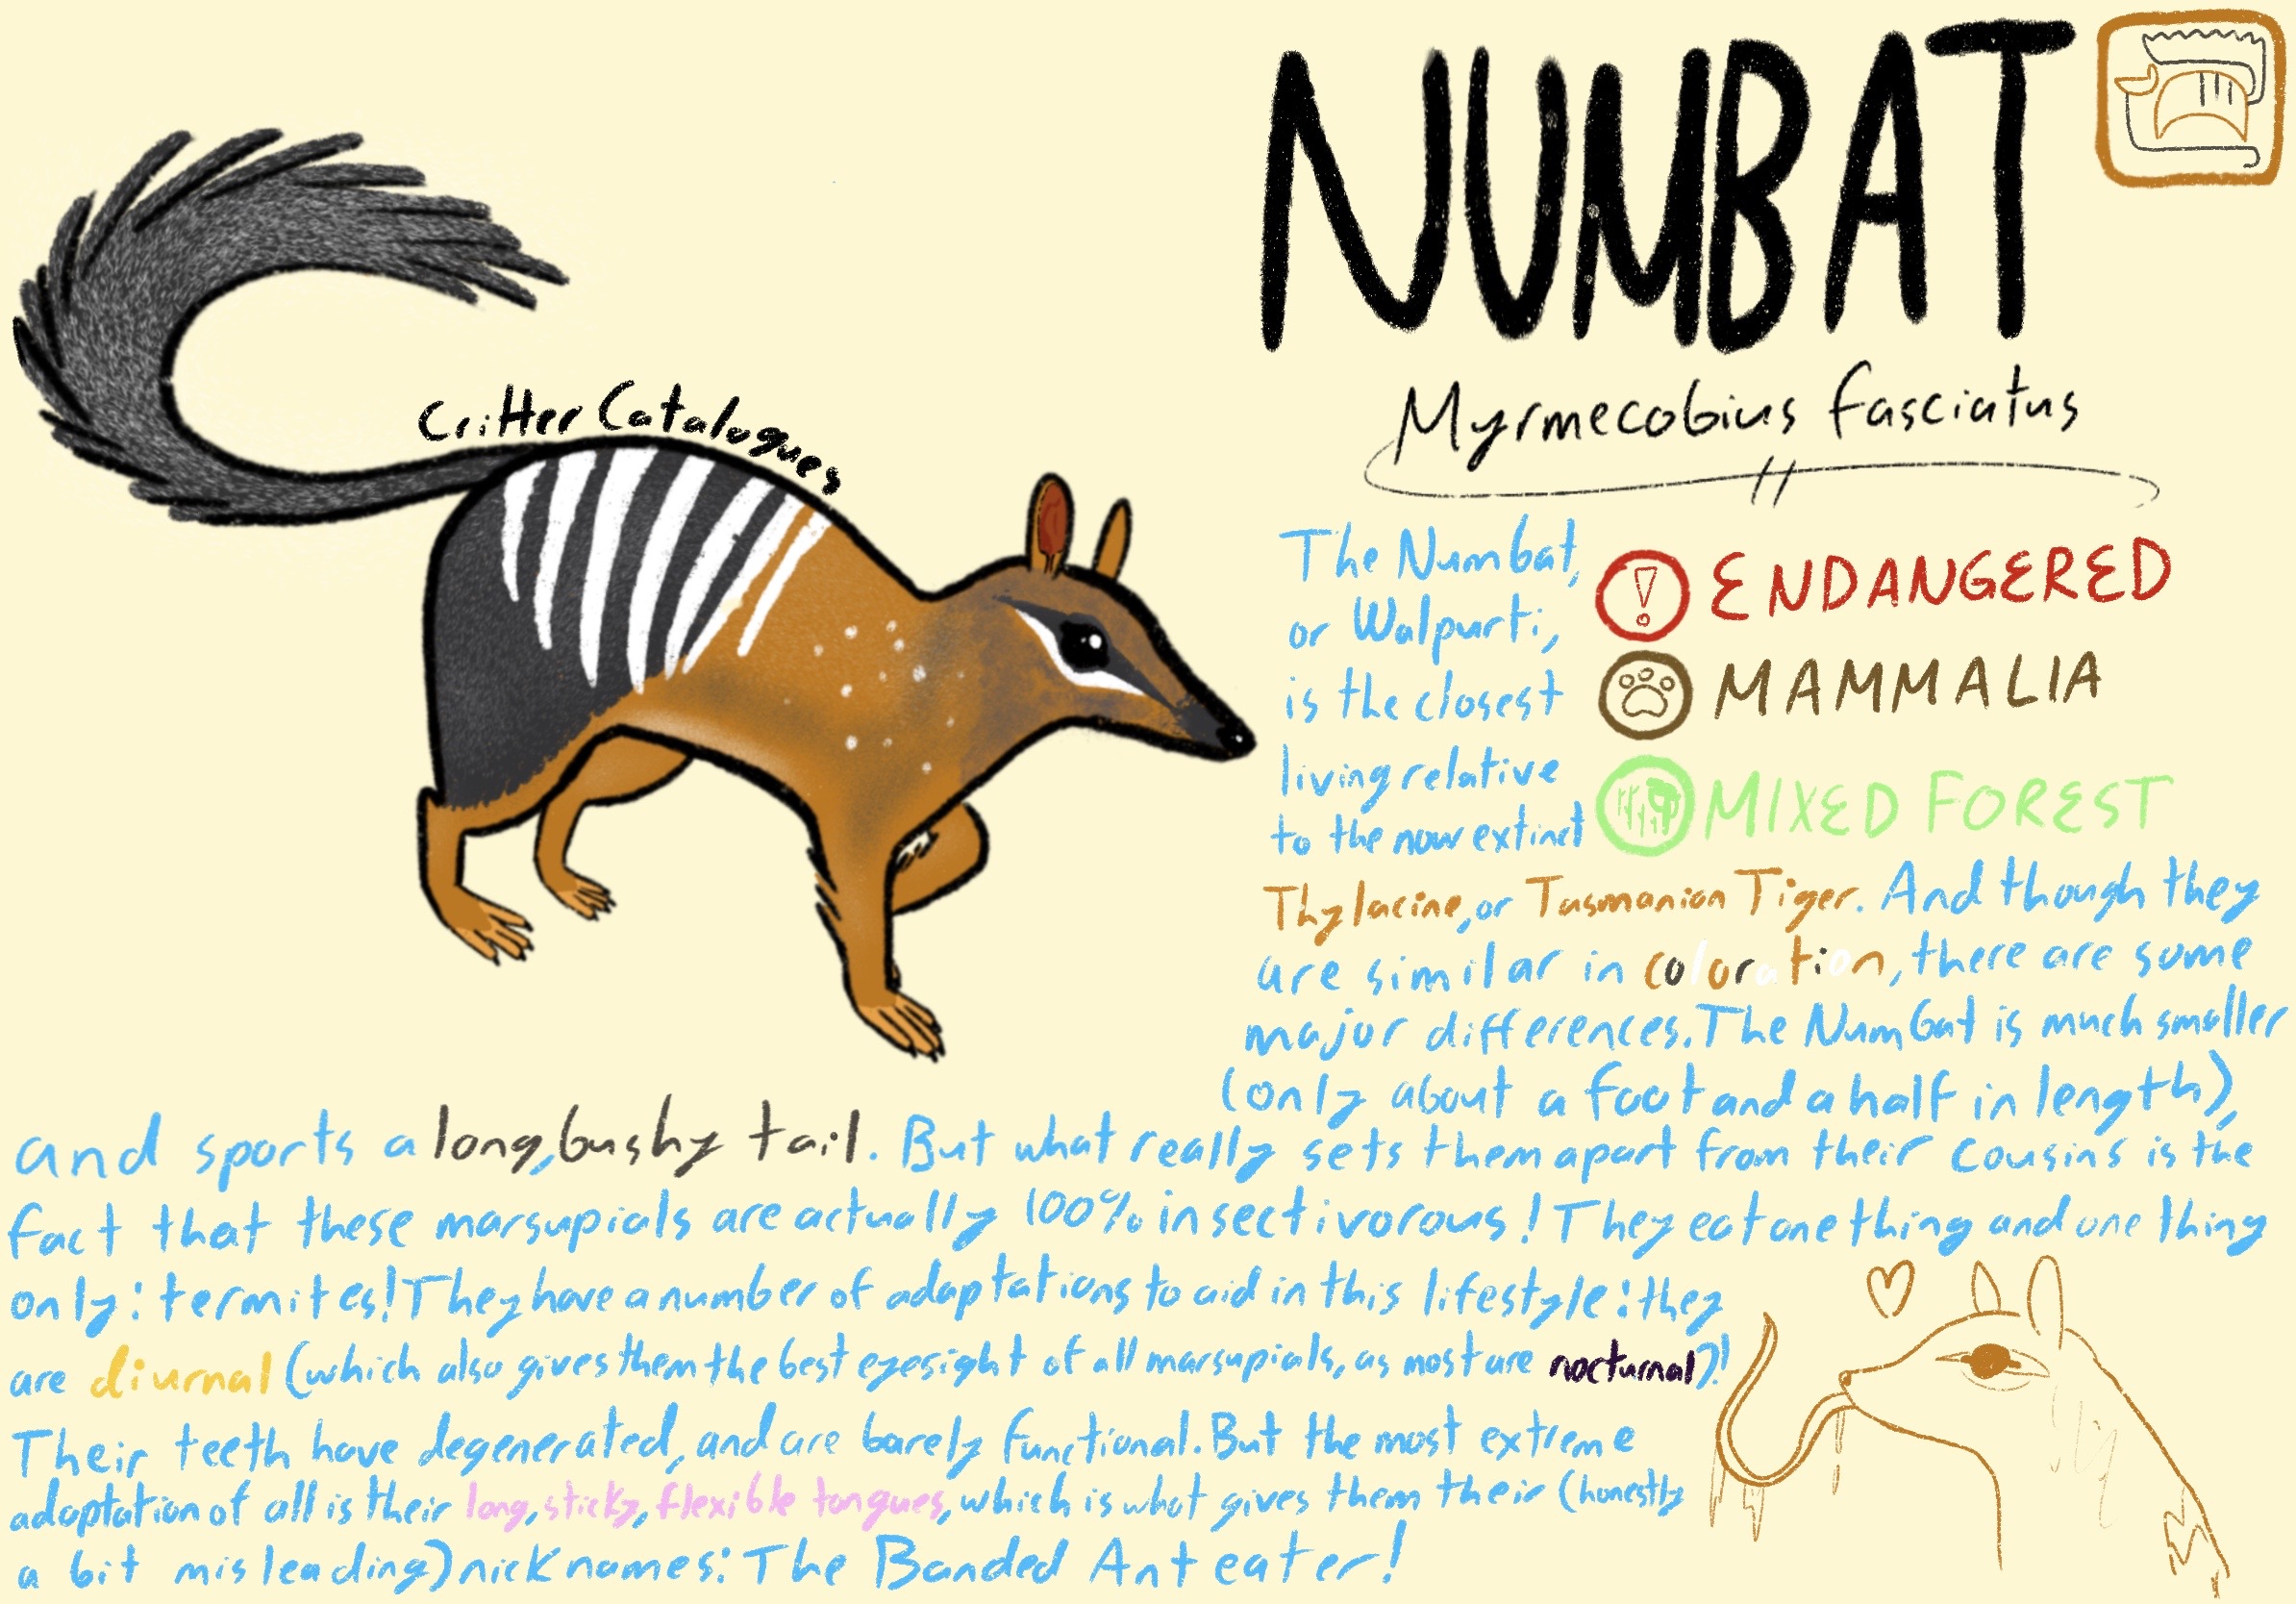 NUMBAT
Myrmecobius fasciatus
Critter Catalogues
ENDANGERED
MAMMALIA
MIXED FOREST
The Numbat,
or Walpurti,
is the closest
living relative
to the now extinct
Thylacine, or Tasmanian Tiger. And though they
are similar in coloration, there are some
major differences. The Numbat is much smaller
(only about a foot and a half in length),
and sports a long, bushy tail. But what really sets them apart from their cousins is the
fact that these marsupials are actually 100% insectivorous! They eat one thing and one thing
only: termites! They have a number of adaptations to aid in this lifestyle: they
are diurnal (which also gives them the best eyesight of all marsupials, as most are nocturnal)!
Their teeth have degenerated, and are barely functional. But the most extreme
adaptation of all is their long, sticky, flexible tongues, which is what gives them their (honestly
a bit misleading) nicknames: The Banded Anteater!